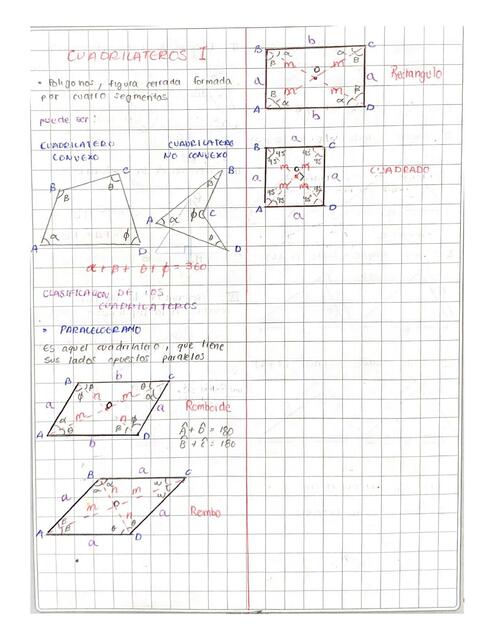 CUADRILATEROS I
• Poligonos, figura cerrada formada
por cuatro segmentos
puede ser:
CUADRILATERO
CONVEXO
CUADRILATERO
NO CONVEXO
B
C
β
θ
α
ϕ
A
D
B
β
A
α
ϕ
C
θ
D
α + β + θ + ϕ = 360
CLASIFICACION DE LOS
CUADRILATEROS
• PARALELOGRAMO
Es aquel cuadrilatero, que tiene
sus lados opuestos paralelos
B
b
C
a
m
n
O
m
n
a
A
b
D
Romboide
Â + D̂ = 180
B̂ + Ĉ = 180
B
a
C
a
n
m
m
O
n
a
A
a
D
Rombo
B
b
C
α
α
β
β
a
m
m
O
a
m
m
β
β
α
α
A
b
D
Rectangulo
B
a
C
45
45
45
45
a
m
m
O
a
m
m
45
45
45
45
A
a
D
CUADRADO